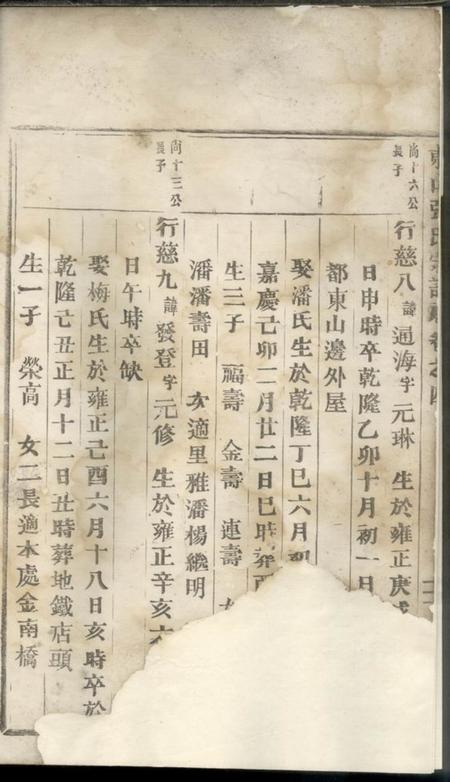 尚十六公
長子
行慈八諱通海字元琳 生於雍正庚戌
日申時卒乾隆乙卯十月初一日
都東山邊外屋
娶潘氏生於乾隆丁巳六月
嘉慶己卯二月廿二日巳時
生三子 福壽 金壽 連壽
潘潘壽田 女適里雅潘楊繼明
尚十三公
長子
行慈九諱發登字元修 生於雍正辛亥六
日午時卒缺
娶梅氏生於雍正己酉六月十八日亥時卒於
乾隆己丑正月十二日丑時葬地鐵店頭
生一子 榮高 女二長適水處金南橋